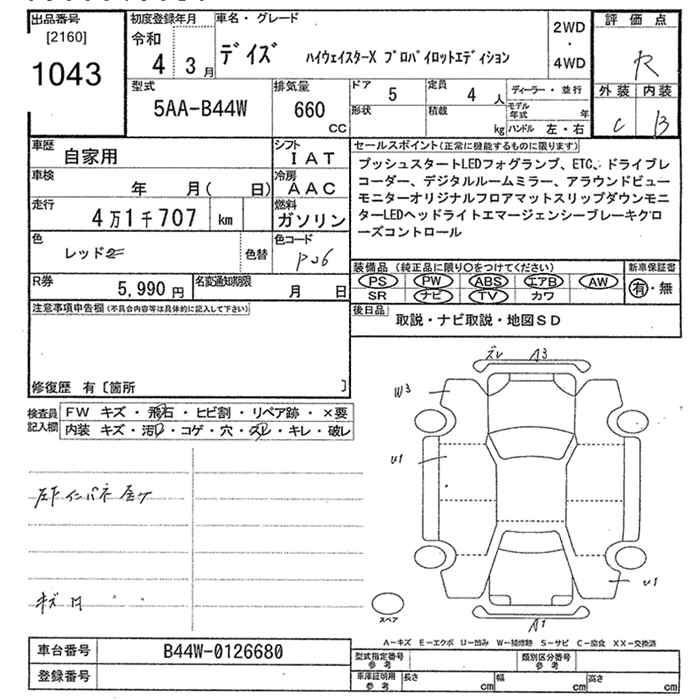 出品番号 初度登録年月 車名・グレード 評価点
[2160] 令和 デイズ ハイウェイスターX プロパイロットエディション 2WD・4WD R
1043 4 3月 外装 内装
C B
型式 排気量 ドア 5 定員 4人 ディーラー・並行
5AA-B44W 660 CC 形状 積載 kg モデル年式 年
ハンドル 左・右
車歴 自家用 シフト IAT
車検 年 月( 日) 冷房 AAC
走行 4万1千707 km 燃料 ガソリン
色 レッド 色替 色コード
R券 5,990円 名変通知期限 月 日
セールスポイント(正常に機能するものに限ります)
プッシュスタートLEDフォグランプ、ETC、ドライブレ
コーダー、デジタルルームミラー、アラウンドビュー
モニターオリジナルフロアマットスリップダウンモニ
ターLEDヘッドライトエマージェンシーブレーキクロ
ーズコントロール
装備品 (純正品に限り○をつけてください) 新車保証書
PS PW ABS エアB AW 有・無
SR ナビ TV カワ
後日品 取説・ナビ取説・地図SD
注意事項申告欄(不具合内容等は具体的に記入して下さい)
修復歴 有〔箇所 〕
検査員記入欄 FW キズ・飛石・ヒビ割・リペア跡・×要
内装 キズ・汚レ・コゲ・穴・スレ・キレ・破レ
ズレ A3
W3
U1
U1
A1
スペア
A−キズ E−エクボ U−凹み W−補修跡 S−サビ C−腐食 XX−交換済
車台番号 B44W-0126680
登録番号
型式指定番号 参考 類別区分番号 参考
車庫証明用 参考 長さ cm 幅 cm 高さ cm